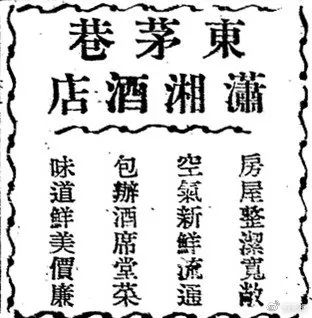 東茅巷
瀟湘酒店
房屋整潔寬敞
空氣新鮮流通
包辦酒席堂菜
味道鮮美價廉